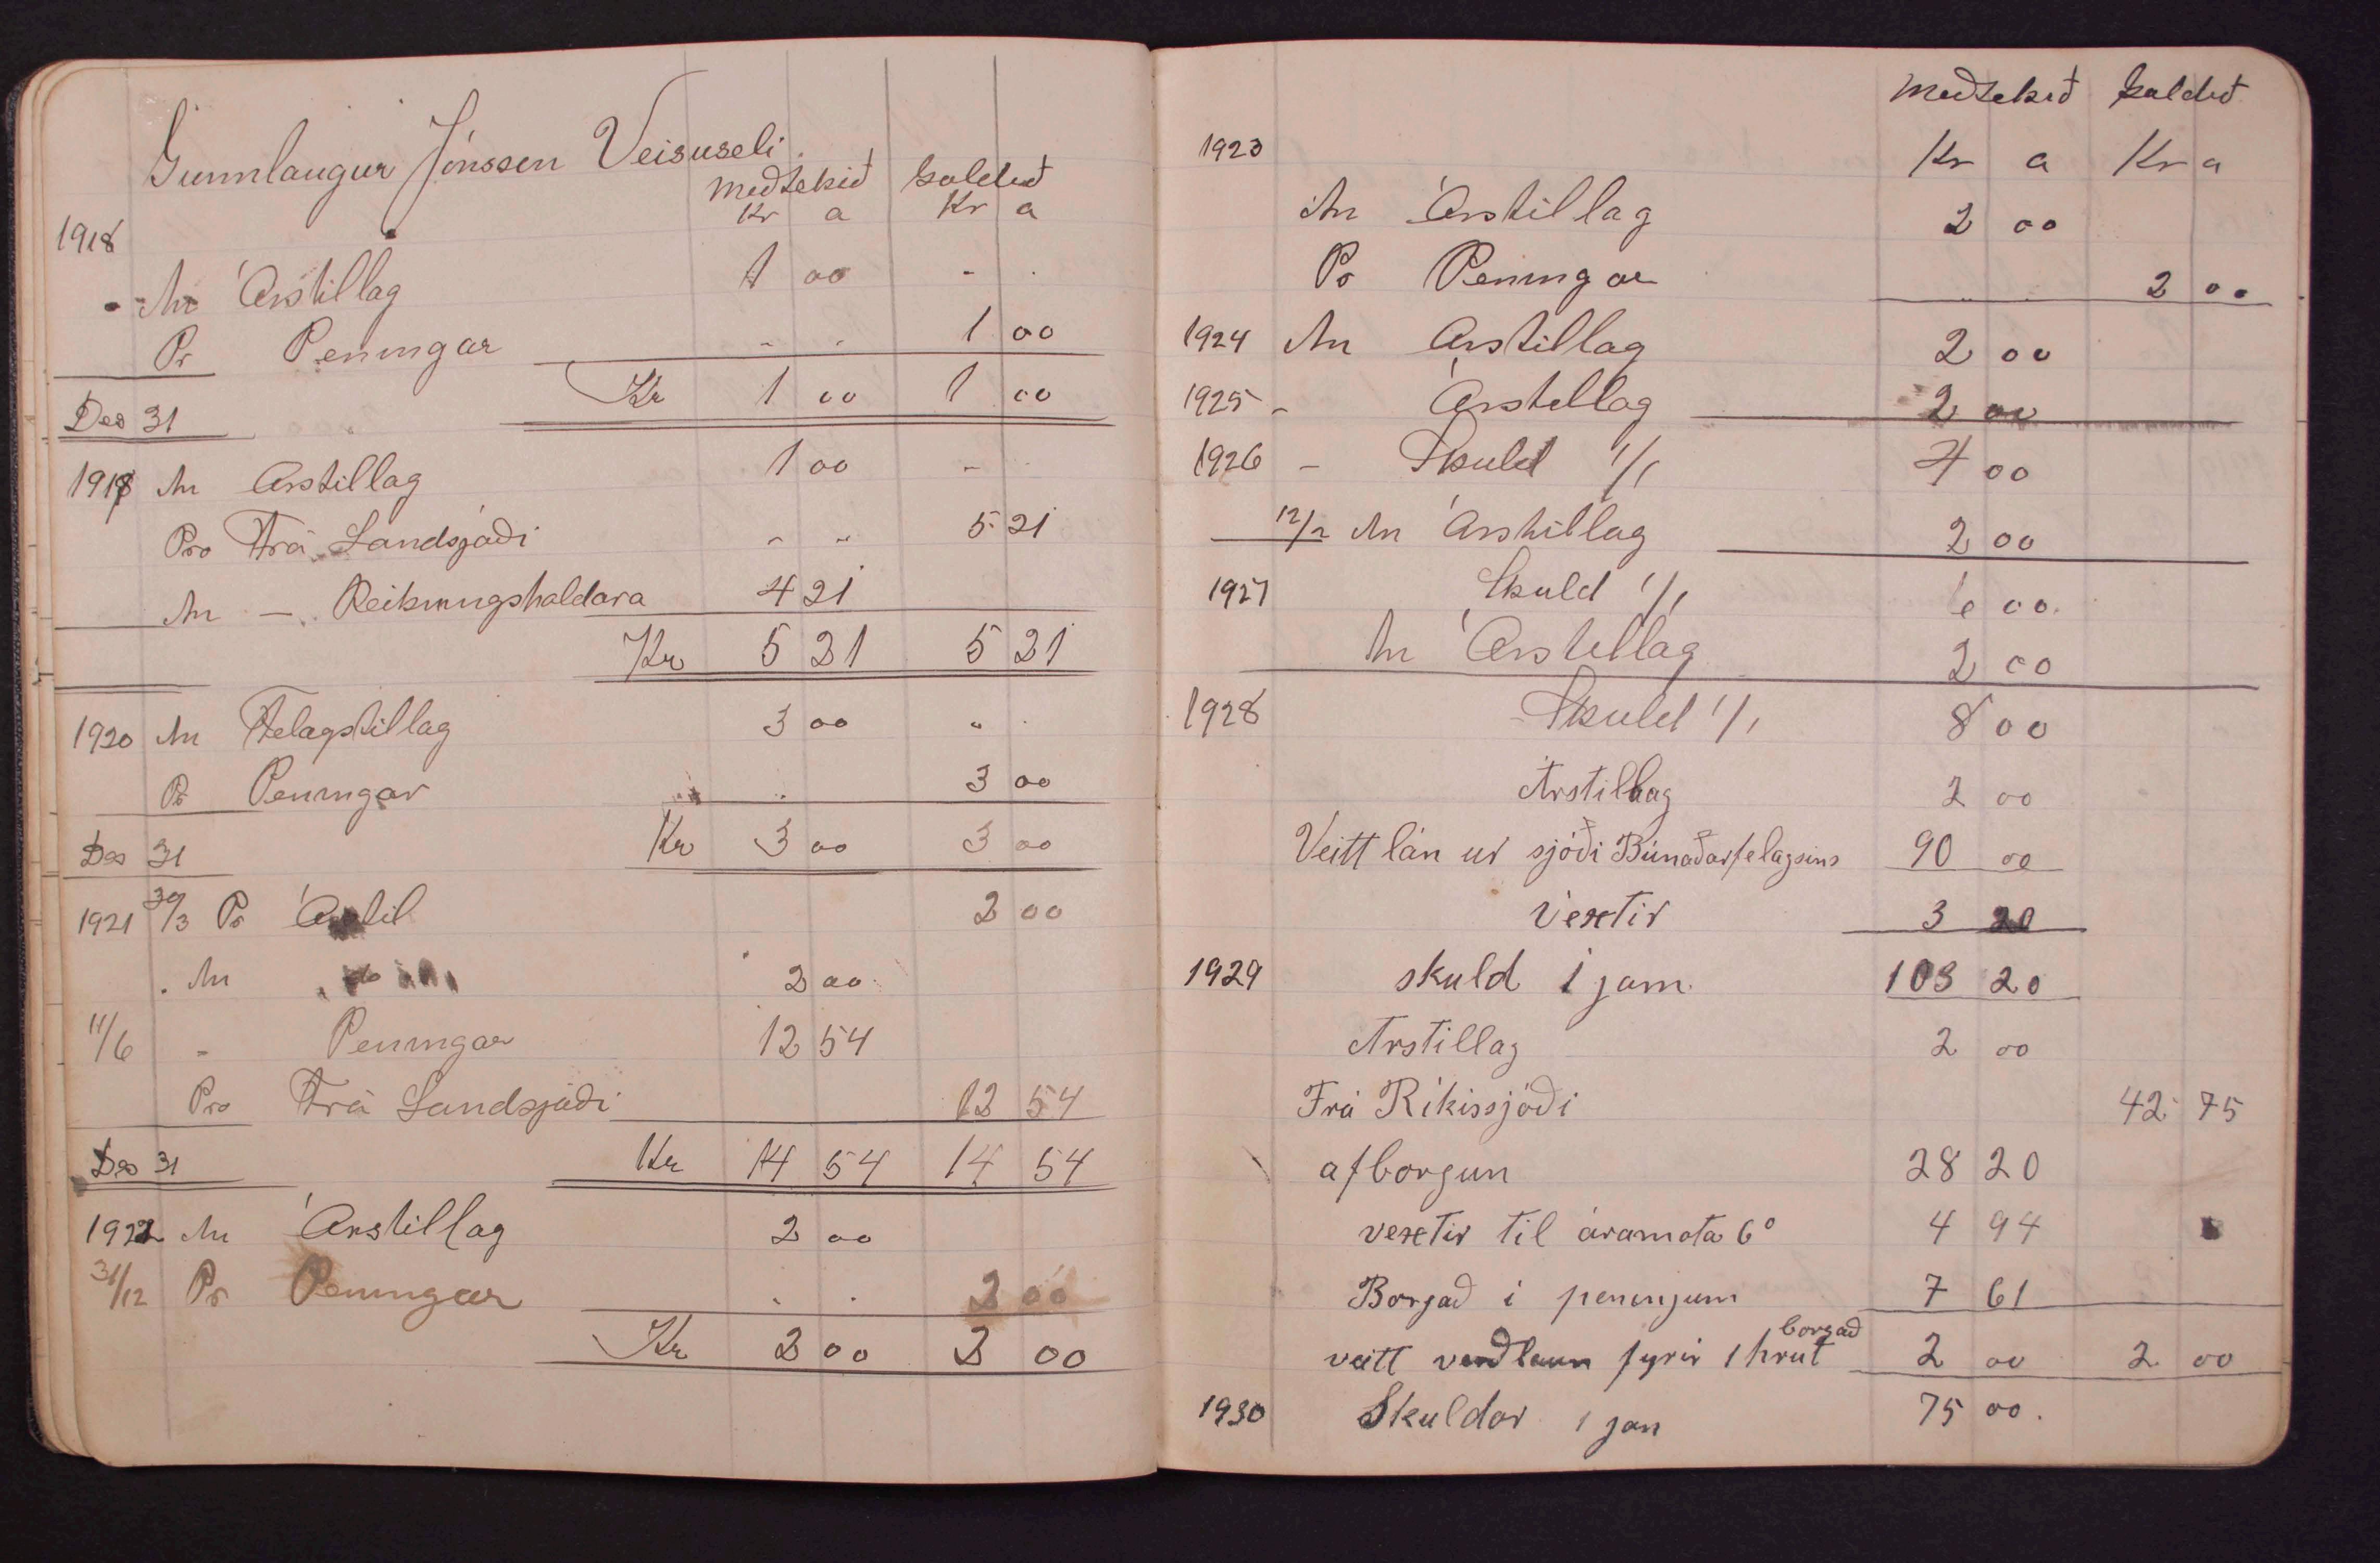 Gunnlaugur Jónsson Veisuseli.
Meðtekið Goldið
Kr a Kr a
1918
An Árstillag 1 00 - .
Pr Peningar - . 1 00
Des 31 Kr 1 00 1 00
1919 An Árstillag 1 00 -
Pro Frá Landsjóði - - 5 21
An - Reikningshaldara 4 21
Kr 5 21 5 21
1920 An Felagstillag 3 00 "
Pr Peningar 3 00
Des 31 Kr 3 00 3 00
1921 30/3 Pr Árstil 2 00
An do 2 00
11/6 - Peningar 12 54
Pro Frá Landsjóði 12 54
Des 31 Kr 14 54 14 54
1922 An Árstillag 2 00
31/12 Pr Peningar . . 2 00
Kr 2 00 2 00
Meðtekið Goldið
1923 Kr a Kr a
An Árstillag 2 00
Pr Peningar 2 00
1924 An Árstillag 2 00
1925 - Árstillag 2 00
1926 - Skuld 1/1 4 00
12/2 An Árstillag 2 00
1927 Skuld 1/1 6 00
An Árstillag 2 00
1928 Skuld 1/1 8 00
Árstillag 2 00
Veitt lán ur sjóði Búnaðarfelagsins 90 00
Vextir 3 20
1929 skuld 1 jan. 103 20
Arstillag 2 00
Frá Ríkissjóði 42 75
afborgun 28 20
vextir til áramota 6° 4 94
Borgað i peningum 7 61
borgað
veitt verðlaun fyrir 1 hrut 2 00 2 00
1930 Skuldar 1 jan 75 00.